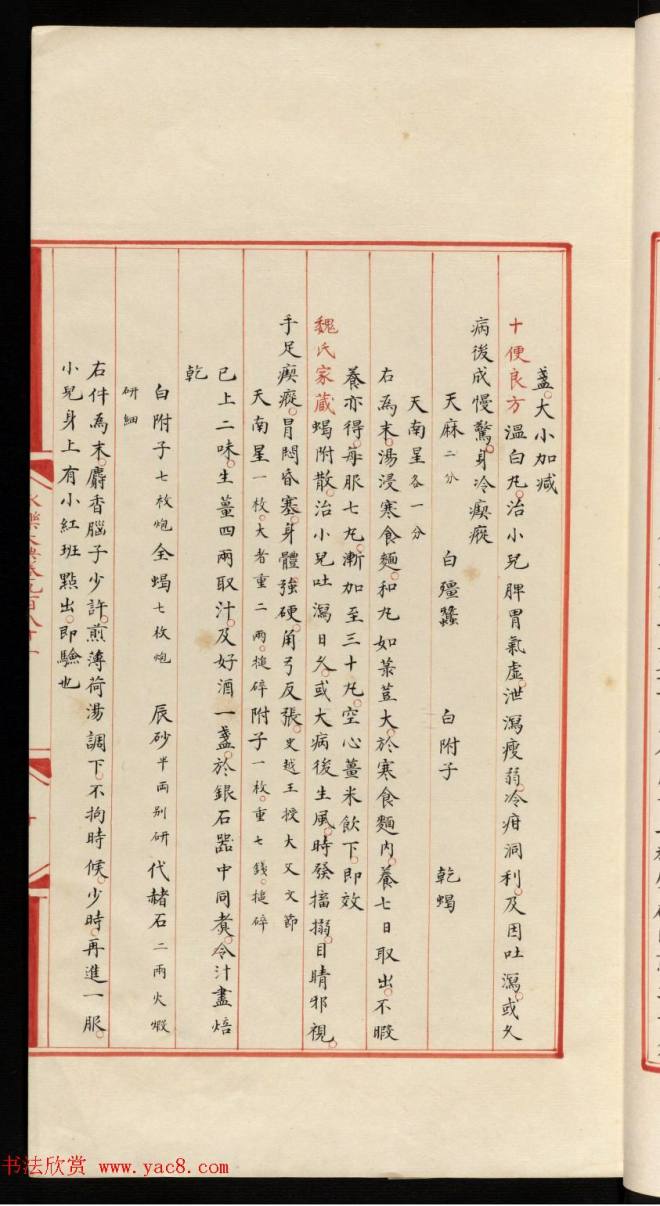 盞。大小加減
十便良方溫白丸。治小兒脾胃氣虛。泄瀉瘦弱。冷疳洞利。及因吐瀉。或久
病後成慢驚。身冷瘈瘲
天麻二分 白殭蠶 白附子 乾蝎
天南星各一分
右為末。湯浸寒食麵。和丸如菉荳大。於寒食麵內。養七日取出。不暇
養亦得。每服七丸。漸加至三十丸。空心薑米飲下。即效
魏氏家藏蝎附散。治小兒吐瀉日久。或大病後生風。時發搐搦。目睛邪視。
手足瘈瘲。冒悶昏塞。身體強硬。角弓反張。史越王授大父文節
天南星一枚。大者重二兩。搥碎附子一枚。重七錢。搥碎
已上二味。生薑四兩取汁。及好酒一盞。於銀石器中同煑。令汁盡焙
乾
白附子七枚炮全蝎七枚炮 辰砂半兩别研代赭石二兩火煅
研細
右件為末。麝香腦子少許。煎薄荷湯調下。不拘時候。少時。再進一服。
小兒身上有小紅班點出。即驗也
永樂大典卷九百八十一
書法欣赏 www.yac8.com